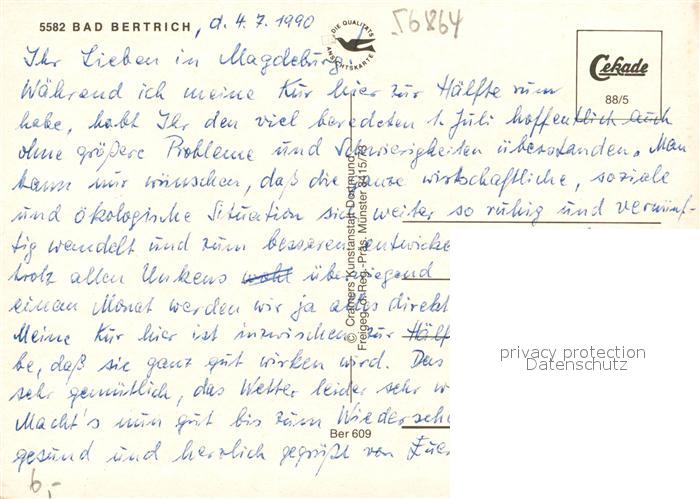 5582 BAD BERTRICH, d. 4.7.1990
56864
DIE QUALITÄTS ANSICHTSKARTE
Cekade
88/5
Ihr Lieben in Magdeburg!
Während ich meine Kur hier zur Hälfte rum
habe, habt Ihr den viel beredeten 1. Juli hoffentlich auch
ohne größere Probleme und Schwierigkeiten überstanden. Man
kann nur wünschen, daß die ganze wirtschaftliche, soziale
und ökologische Situation sich weiter so ruhig und vernünf-
tig wandelt und zum besseren entwicke
trotz allen Unkens wohl überwiegend
einen Monat werden wir ja alles direkt
Meine Kur hier ist inzwischen zur Hälf
be, daß sie ganz gut wirken wird. Das
sehr gemütlich, das Wetter leider sehr w
Macht's nun gut bis zum Wiederseh
gesund und herzlich gegrüßt von Eue
© Cramers Kunstanstalt Dortmund
Freigeg. d. Reg.-Präs. Münster
Ber 609
6,-
privacy protection
Datenschutz